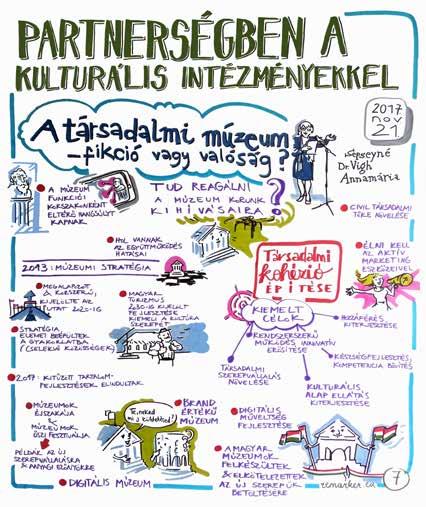 PARTNERSÉGBEN A
KULTURÁLIS INTÉZMÉNYEKKEL
2017
nov
21
A társadalmi múzeum
-fikció vagy valóság?
Sepseyné
Dr. Vígh
Annamária
A MÚZEUM
FUNKCIÓI
KORSZAKONKÉNT
ELTÉRŐ HANGSÚLYT
KAPNAK
TUD REAGÁLNI
A MÚZEUM KORUNK
KIHÍVÁSAIRA?
CIVIL TÁRSADALMI
TŐKE NÖVELÉSE
HOL VANNAK
AZ EGYÜTTMŰKÖDÉS
HATÁRAI
ÉLNI KELL
AZ AKTÍV
MARKETING
ESZKÖZEIVEL
2013: MÚZEUMI STRATÉGIA
Társadalmi
kohézió
ÉPÍTÉSE
MEGALAPOZOTT
& KORSZERŰ,
KIJELÖLTE AZ
UTAT 2020-IG
MAGYAR
TURIZMUS
2030-IG KIJELÖLT
FEJLESZTÉSE
KIEMELI A KULTÚRA
SZEREPÉT
KIEMELT
CÉLOK
HOZZÁFÉRÉS
KITERJESZTÉSE
STRATÉGIA
ELEMEI BEÉPÜLTEK
A GYAKORLATBA
(CSELEKVŐ KÖZÖSSÉGEK)
RENDSZERSZERŰ
MŰKÖDÉS INNOVATÍV
ERŐSÍTÉSE
KÉSZSÉGFEJLESZTÉS,
KOMPETENCIA BŐVÍTÉS
TÁRSADALMI
SZEREPVÁLLALÁS
NÖVELÉSE
KULTURÁLIS
ALAPELLÁTÁS
KITERJESZTÉSE
2017: KITŰZÖTT TARTALOM-
FEJLESZTÉSEK ELINDULTAK
MÚZEUMOK
ÉJSZAKÁJA
&
MÚZEUMOK
ŐSZI FESZTIVÁLJA
Te, neked
mi a küldetésed?
BRAND
ÉRTÉKŰ
MÚZEUM
DIGITÁLIS
MŰVELTSÉG
FEJLESZTÉSE
PÉLDÁK AZ ÚJ
SZEREPVÁLLALÁSRA
& ANYAGI ELŐNYEIKRE
A MAGYAR
MÚZEUMOK
FELKÉSZÜLTEK
& ELKÖTELEZETTEK
AZ ÚJ SZEREPÜK
BETÖLTÉSÉRE
DIGITÁLIS MÚZEUM
remarker.eu
7